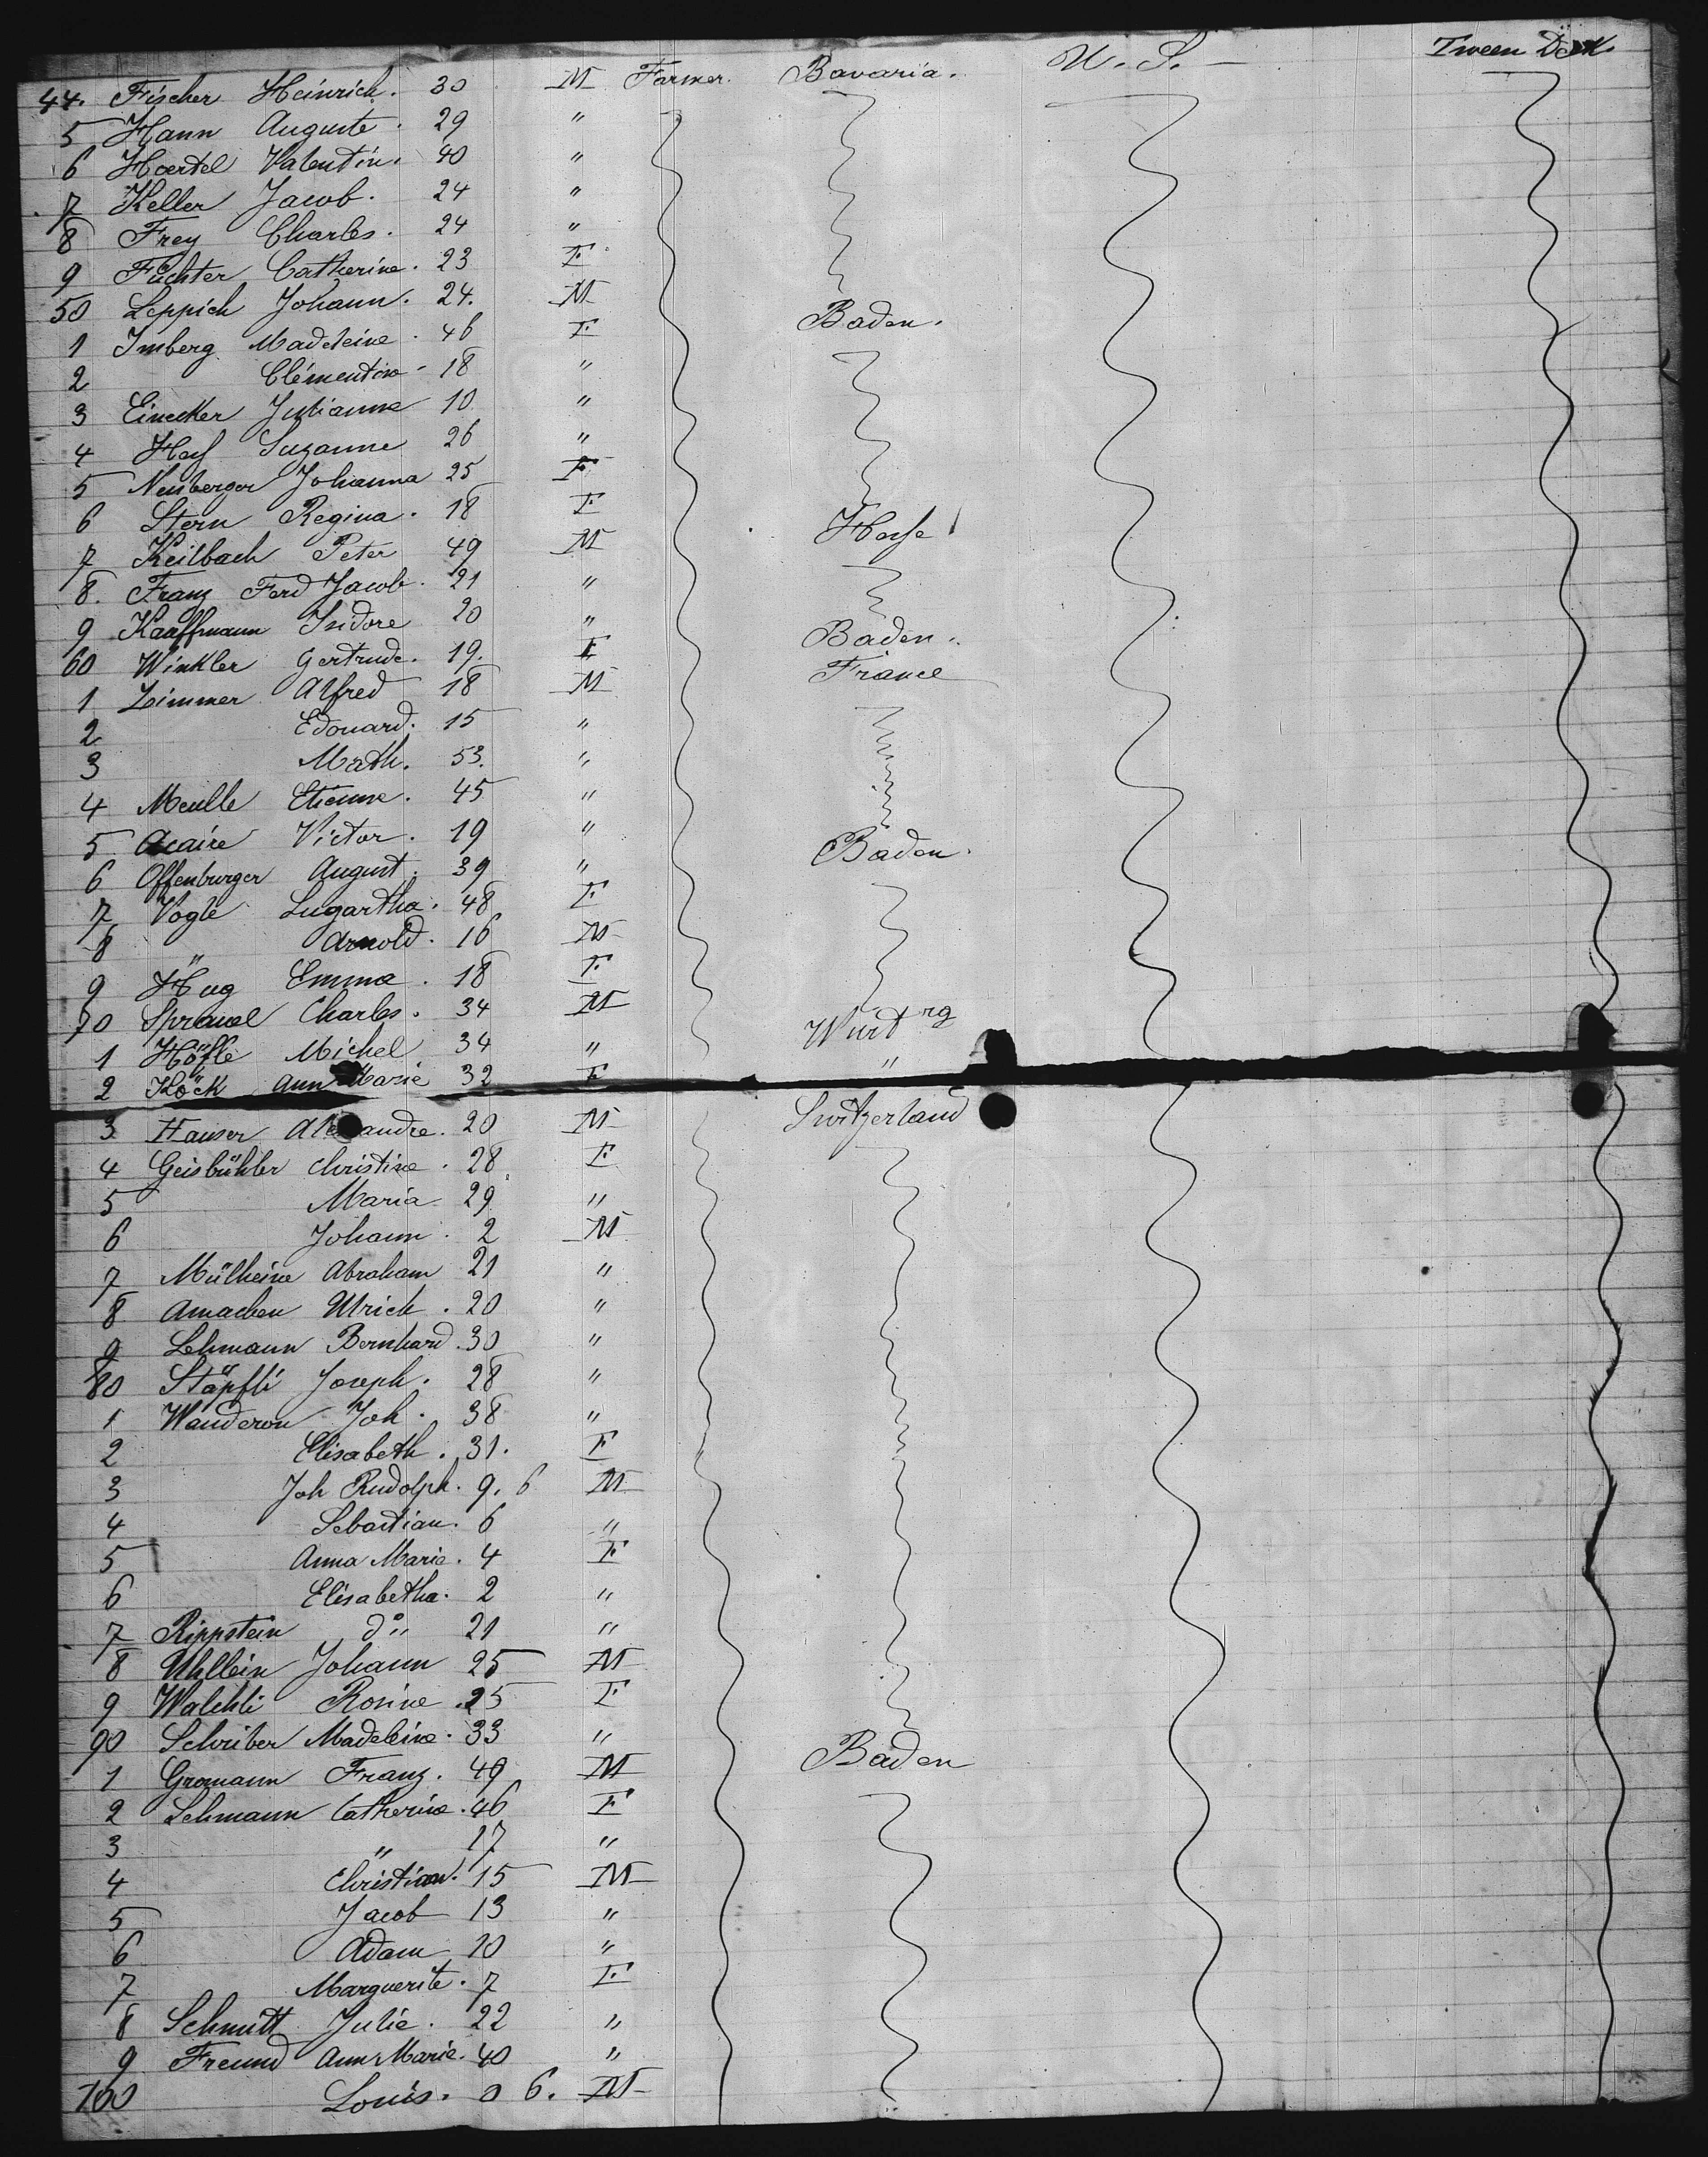 44. Fischer Heinrich. 30 M Farmer. Bavaria. U. S. — Tween Deck
5 Hann Auguste. 29 "
6 Hoertel Valentin. 40 "
7 Keller Jacob. 24 "
8 Frey Charles. 24 "
9 Füchter Catherine. 23 F
50 Leppich Johann. 24. M
1 Imberg Madeleine. 46 F Baden.
2 Clémentine - 18 "
3 Einecker Julianna 10 "
4 Hess Suzanne 26 "
5 Neuberger Johanna 25 F
6 Stern Regina. 18 F
7 Keilbach Peter 49 M Hesse
8. Franz Ferd Jacob. 21 "
9 Kaaffmann Isidore 20 "
60 Winkler Gertrude. 19. F Baden.
1 Zimmer Alfred 18 M France
2 Edouard. 15 "
3 Math. 53. "
4 Meulle Etienne. 45 "
5 Acaire Victor. 19 "
6 Offenburger August. 39 " Baden.
7 Vogle Lugartha. 48 F
8 " Arnold. 16 M
9 Hug Emma. 18 F
70 Sprauel Charles. 34 M
1 Höfle Michel 34 " Wurtrg
2 Köck Ann Marie 32 F "
3 Hauser Alexandre. 20 M Switzerland
4 Geisbühler Christine. 28 F
5 Maria 29 "
6 Johann. 2 M
7 Mülheine Abraham 21 "
8 Amachen Ulrich. 20 "
9 Lehmann Bernhard. 30 "
80 Stäpfli Joseph. 28 "
1 Wanderon Joh. 38 "
2 Elisabeth. 31. F
3 Joh Rudolph. 9. 6 M
4 Sebastian. 6 "
5 Anna Marie. 4 F
6 Elisabetha. 2 "
7 Rippstein do 21 "
8 Uhllein Johann 25 M
9 Walchli Rosine. 25 F
90 Schriber Madeleine. 33 "
1 Gromann Franz. 49 M Baden
2 Lehmann Catherine. 46 F
3 " 17 "
4 Christian. 15 M
5 Jacob 13 "
6 Adam 10 "
7 Marguerite. 7 F
8 Schmitt Julie. 22 "
9 Freund Ann Marie. 40 "
100 Louis. 0 6. M